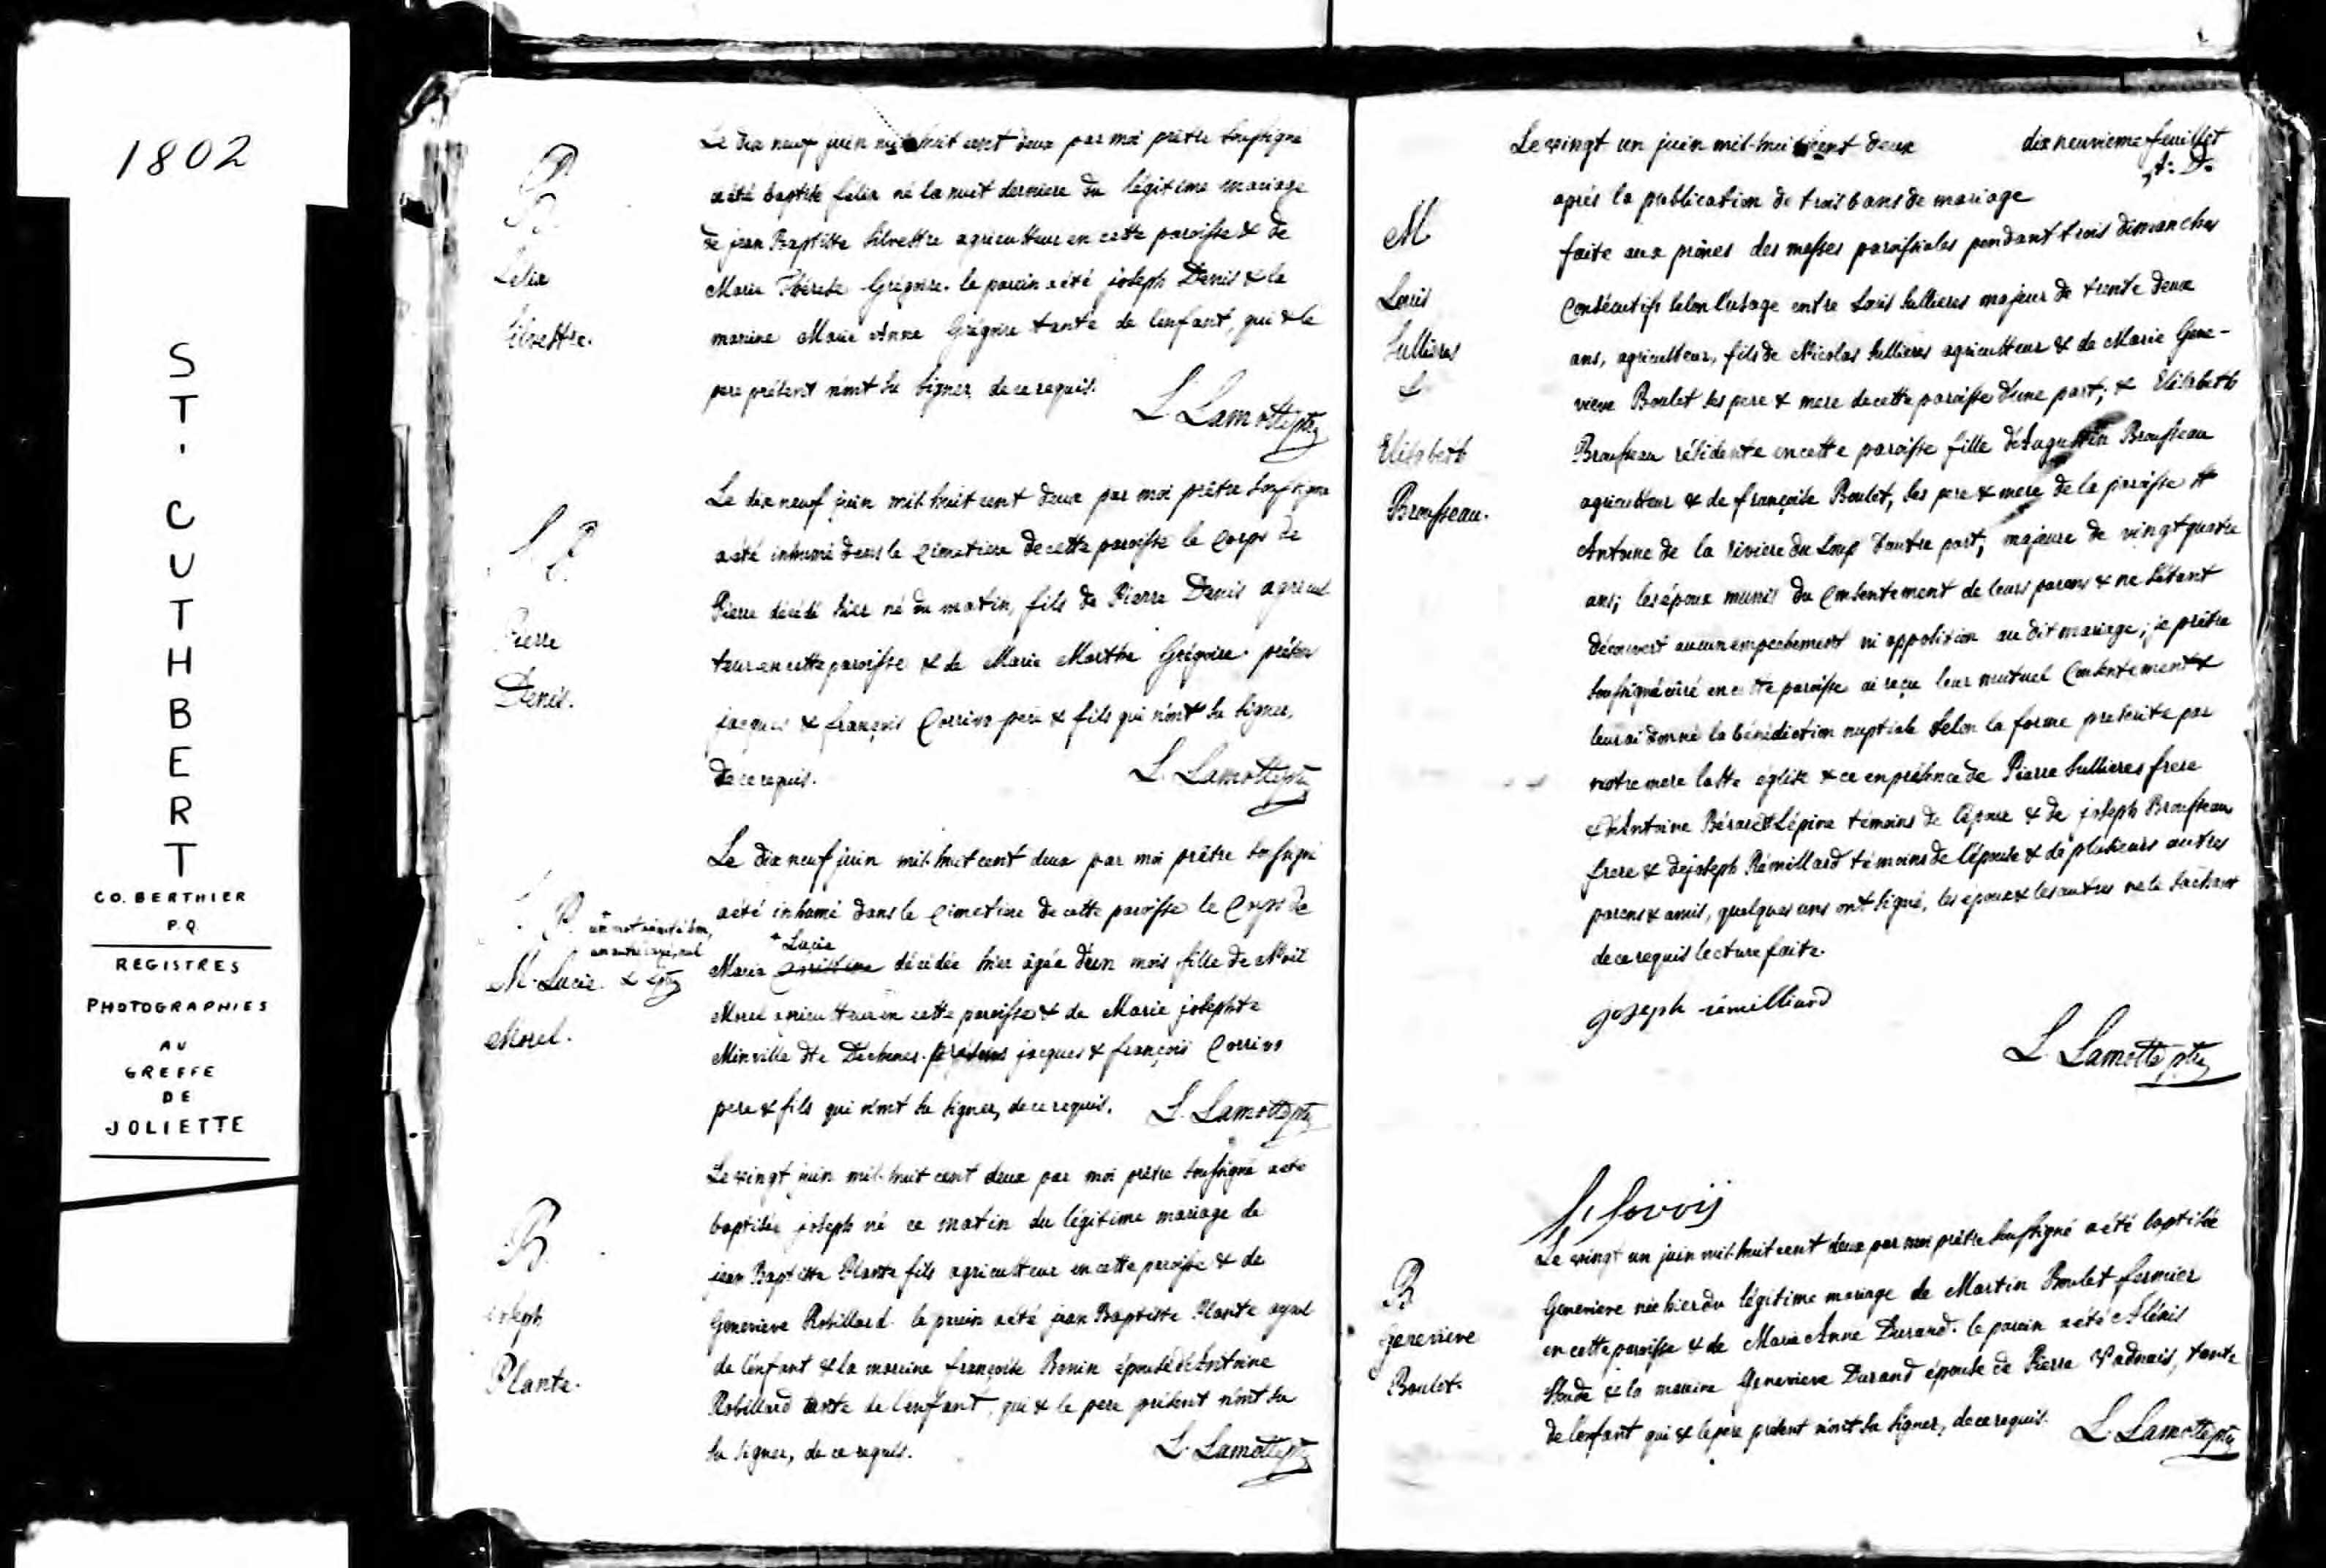 1802
ST. CUTHBERT
CO. BERTHIER
P.Q.
REGISTRES
PHOTOGRAPHIES
AU
GREFFE
DE
JOLIETTE
B
Felix
Silvestre.
Le dix neuf juin mil huit cent deux par moi prêtre soussigné
a été baptisé felix né la nuit derniere du légitime mariage
de jean Baptiste Silvestre agriculteur en cette paroisse & de
Marie Thérese Grégoire. le parein a été joseph Denis & la
mareine Marie Anne Grégoire tante de l'enfant, qui & le
pere présent n'ont su signer, de ce requis.
L. Lamotte ptre
S
Pierre
Denis.
Le dix neuf juin mil huit cent deux par moi prêtre soussigné
a été inhumé dans le cimetiere de cette paroisse le corps de
Pierre décédé hier né du matin, fils de Pierre Denis agricul
teur en cette paroisse & de Marie Marthe Grégoire. présens
jacques & françois Corrivo pere & fils qui n'ont su signer,
de ce requis.
L. Lamotte ptre
S.
M. Lucie
Morel.
Le dix neuf juin mil huit cent deux par moi prêtre soussigné
a été inhumé dans le cimetiere de cette paroisse le corps de
+ Lucie
Marie décédée hier âgée d'un mois fille de Noël
Morel agriculteur en cette paroisse & de Marie josephte
Minville dte Dechenes. présens jacques & françois Corrivo
pere & fils qui n'ont su signer, de ce requis.
L. Lamotte ptre
B.
joseph
Plante.
Le vingt juin mil huit cent deux par moi prêtre soussigné a été
baptisée joseph né ce matin du légitime mariage de
jean Baptiste Plante fils agriculteur en cette paroisse & de
Genevieve Robillard. le parein a été jean Baptiste Plante ayeul
de l'enfant & la mareine françoise Bonin épouse de Antoine
Robillard tante de l'enfant, qui & le pere présent n'ont su
su signer, de ce requis.
L. Lamotte ptre
dix neuvieme feuillet
A: D.
M
Louis
Sullieres
&
Elisabeth
Brousseau.
Le vingt un juin mil-huit cent deux
après la publication de trois bans de mariage
faite aux prônes des messes paroissiales pendant trois dimanches
consécutifs selon l'usage entre Louis Sullieres majeur de trente deux
ans, agriculteur, fils de Nicolas Sullieres agriculteur & de Marie Gene-
vieve Boulet ses pere & mere de cette paroisse d'une part; & Elisabeth
Brousseau résidente en cette paroisse fille d'Augustin Brousseau
agriculteur & de françoise Boulet, ses pere & mere de la paroisse St
Antoine de la riviere du Loup d'autre part, majeure de vingt quatre
ans; les époux munis du consentement de leurs parens & ne s'étant
découvert aucun empechement ni opposition au dit mariage; je prêtre
soussigné curé en cette paroisse ai reçu leur mutuel consentement &
leur ai donné la bénédiction nuptiale selon la forme prescrite par
notre mere la Ste église & ce en présence de Pierre Sullieres frere
& d'Antoine Bérard Lépine témoins de l'époux & de joseph Brousseau
frere & de joseph Rémillard témoins de l'épouse & de plusieurs autres
parens & amis, quelques uns ont signé, les époux & les autres ne le sachant
de ce requis lecture faite.
joseph rémilliard
L. Lamotte ptre
B
Genevieve
Boulet.
Le vingt un juin mil huit cent deux par moi prêtre soussigné a été baptisée
Genevieve née hier du légitime mariage de Martin Boulet fermier
en cette paroisse & de Marie Anne Durand. le parein a été Aléxis
& la mareine Genevieve Durand épouse de Pierre Vadnais, tante
de l'enfant qui & le pere présent n'ont su signer, de ce requis.
L. Lamotte ptre